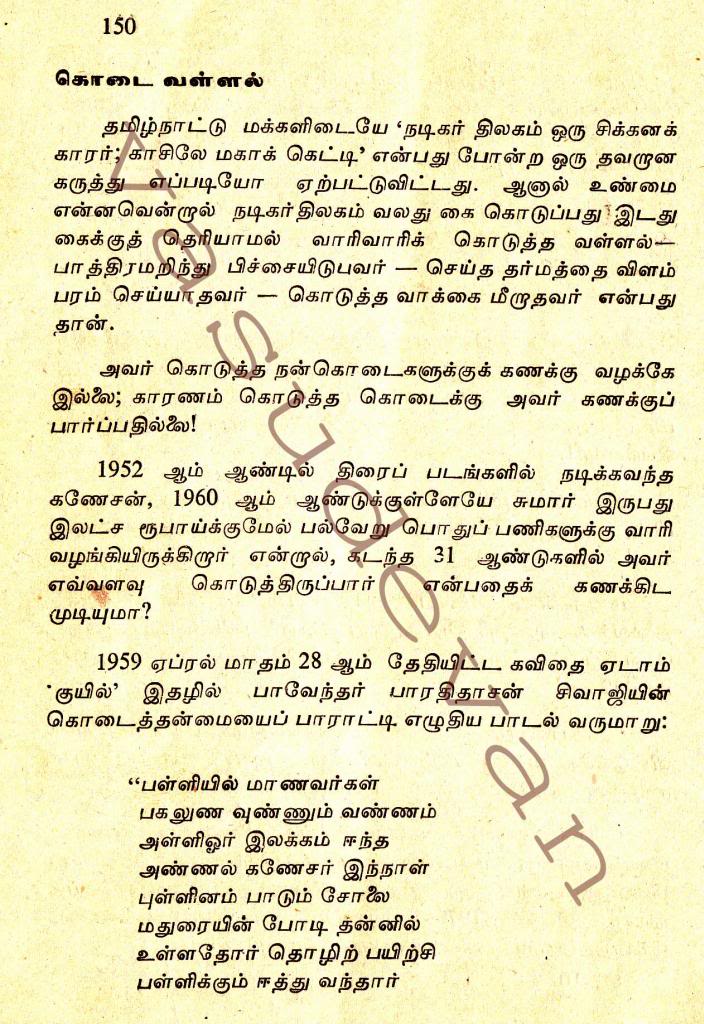 150
கொடை வள்ளல்
தமிழ்நாட்டு மக்களிடையே ‘நடிகர் திலகம் ஒரு சிக்கனக்
காரர்; காசிலே மகாக் கெட்டி’ என்பது போன்ற ஒரு தவறான
கருத்து எப்படியோ ஏற்பட்டுவிட்டது. ஆனால் உண்மை
என்னவென்றால் நடிகர்திலகம் வலது கை கொடுப்பது இடது
கைக்குத் தெரியாமல் வாரிவாரிக் கொடுத்த வள்ளல்—
பாத்திரமறிந்து பிச்சையிடுபவர் — செய்த தர்மத்தை விளம்
பரம் செய்யாதவர் — கொடுத்த வாக்கை மீறாதவர் என்பது
தான்.
அவர் கொடுத்த நன்கொடைகளுக்குக் கணக்கு வழக்கே
இல்லை; காரணம் கொடுத்த கொடைக்கு அவர் கணக்குப்
பார்ப்பதில்லை!
1952 ஆம் ஆண்டில் திரைப் படங்களில் நடிக்கவந்த
கணேசன், 1960 ஆம் ஆண்டுக்குள்ளேயே சுமார் இருபது
இலட்ச ரூபாய்க்குமேல் பல்வேறு பொதுப் பணிகளுக்கு வாரி
வழங்கியிருக்கிறார் என்றால், கடந்த 31 ஆண்டுகளில் அவர்
எவ்வளவு கொடுத்திருப்பார் என்பதைக் கணக்கிட
முடியுமா?
1959 ஏப்ரல் மாதம் 28 ஆம் தேதியிட்ட கவிதை ஏடாம்
‘குயில்’ இதழில் பாவேந்தர் பாரதிதாசன் சிவாஜியின்
கொடைத்தன்மையைப் பாராட்டி எழுதிய பாடல் வருமாறு:
“பள்ளியில் மாணவர்கள்
பகலுண வுண்ணும் வண்ணம்
அள்ளிஓர் இலக்கம் ஈந்த
அண்ணல் கணேசர் இந்நாள்
புள்ளினம் பாடும் சோலை
மதுரையின் போடி தன்னில்
உள்ளதோர் தொழிற் பயிற்சி
பள்ளிக்கும் ஈத்து வந்தார்
vasudevan